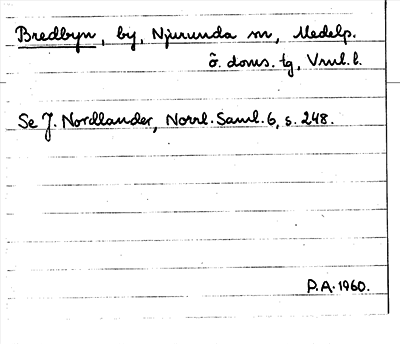 Bredbyn, by, Njurunda sn, Medelp.
ö. doms. tg, Vnrl. l.
Se J. Nordlander, Norrl. Saml. 6, s. 248.
P.A. 1960.